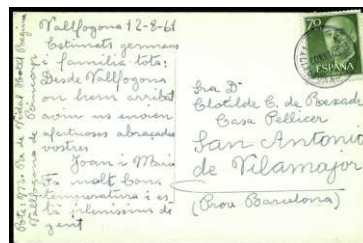 Vallfogona 12-8-61
Estimats germans
i familia tota:
Desde Vallfogona
on hem arribat
avui us envien
afectuoses abraçades
vostres
Joan i Maria
Fa molt bona
temperatura i es-
tà pleníssim de
gent
Rte: Mª Pa de Vidal Hotel Regina
Vallfogona de Riucorp
70
ESPAÑA
Sra Dª
Clotilde C. de
Casa Pellicer
San Antonio
de Vilamajor
(Prov Barcelona)